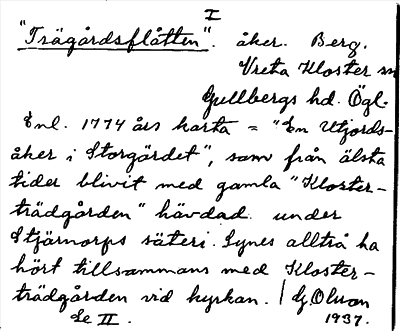 I
"Trägårdsflåtten". åker. Berg.
Vreta Kloster sn
Gullbergs hd. Ögl.
Enl. 1774 års karta = "En Utjords-
åker i Storgärdet", som från älsta
tider blivit med gamla "Kloster-
trädgården" hävdad under
Stjärnorps säteri. Synes alltså ha
hört tillsammans med Kloster-
trädgården vid kyrkan. / G. Olson
Se II. 1937.